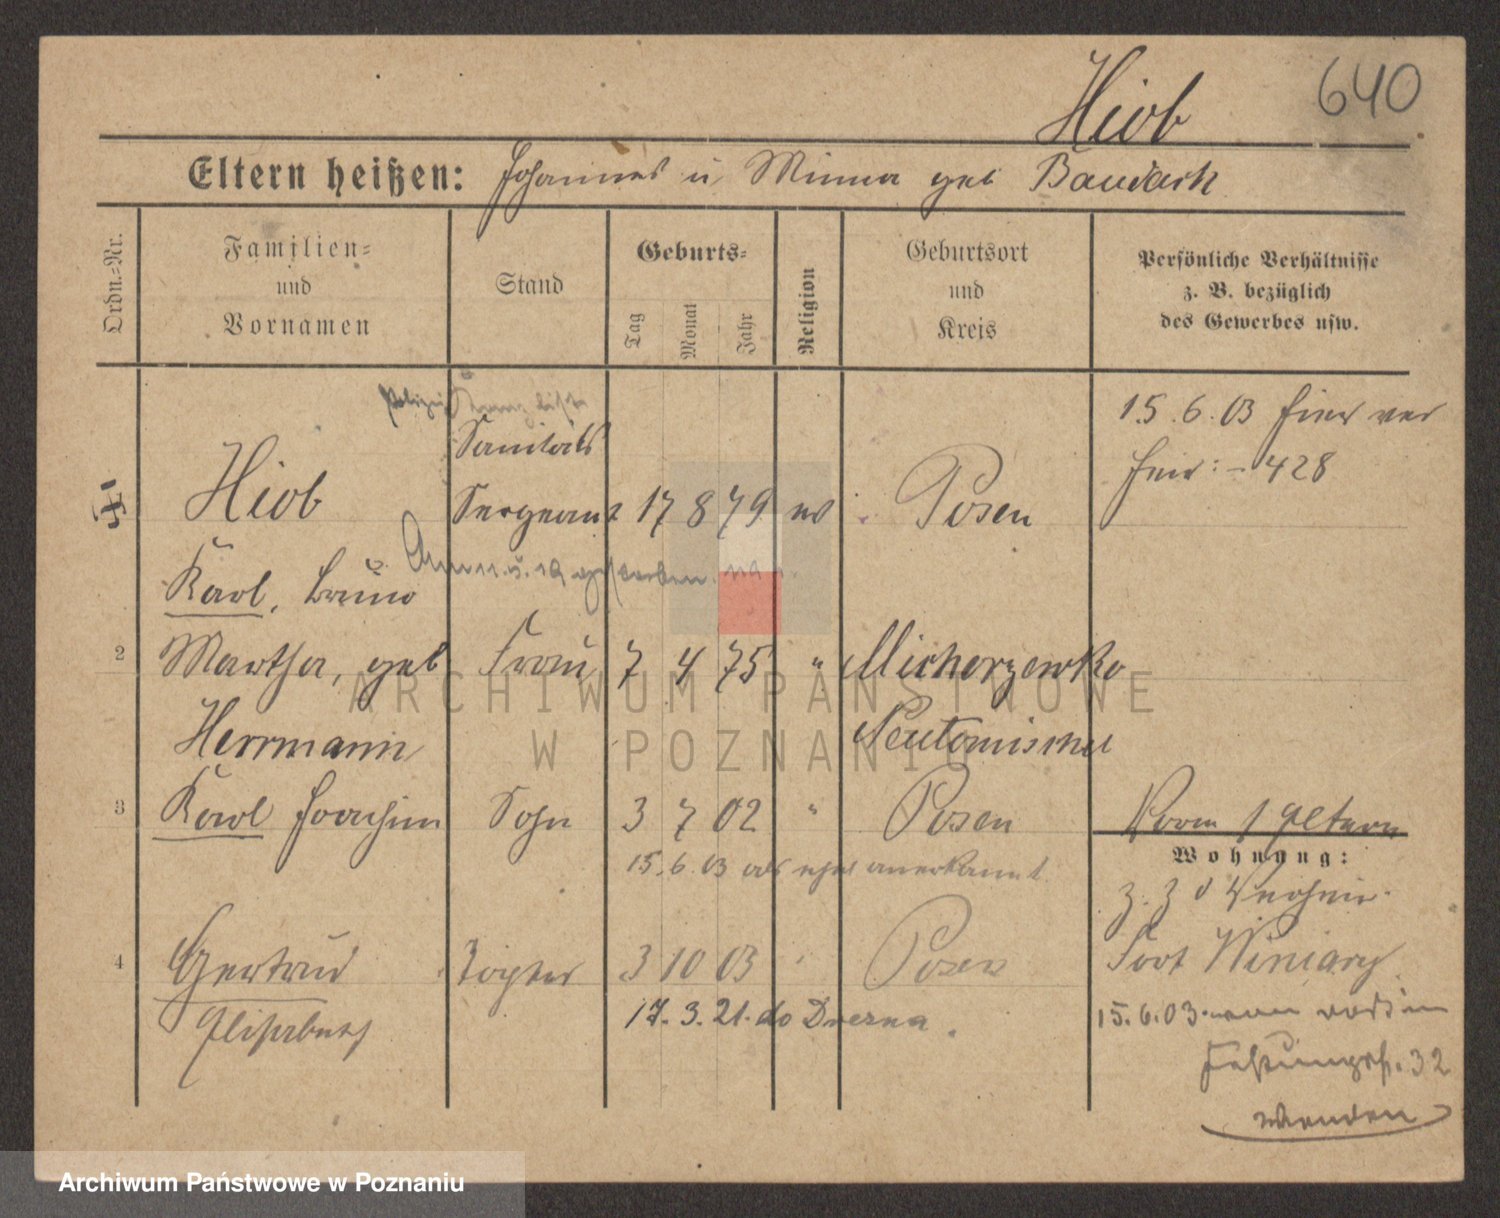 Hiob
640
Eltern heißen: Johannes u Minna geb Baudach
Ordn.-Nr.
Familien- und Vornamen
Stand
Geburts-
Tag
Monat
Jahr
Religion
Geburtsort und Kreis
Persönliche Verhältnisse
z. B. bezüglich
des Gewerbes usw.
Polizei
Sanitäts
15.6.03
428
Hiob Sergeant 17 8 79 ev Posen
Karl, Bruno
2 Martha, geb Frau 7 4 75 " Michorzewko
Herrmann Neutomischel
3 Karl Joachim Sohn 3 7 02 " Posen
15.6.03 als ehel anerkannt
Wohnung:
4 Gertrud Tochter 3 10 03 Posen
Fort Winiary
Elisabeth
17.3.21. do Drezna.
15.6.03
32
wenden
ARCHIWUM PAŃSTWOWE
W POZNANIU
Archiwum Państwowe w Poznaniu